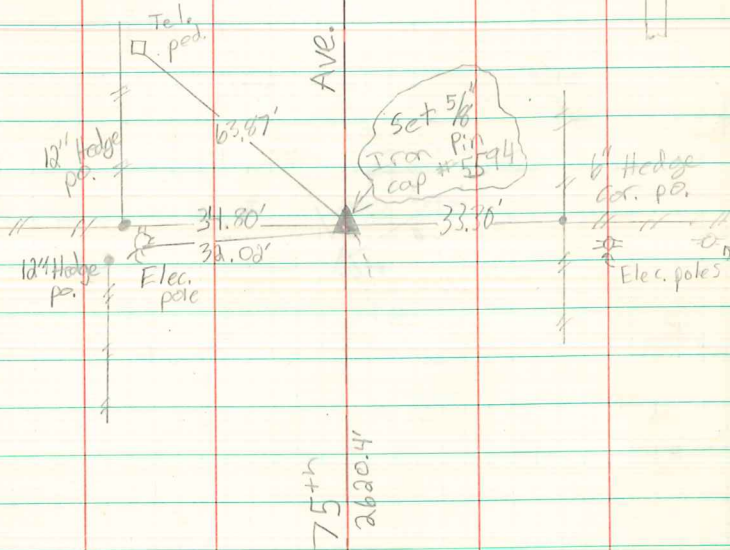 Tel.
ped.
Ave.
63.87'
Set 5/8"
Iron Pin
cap #5594
12" Hedge
po.
6" Hedge
Cor. po.
34.80'
33.30'
32.02'
12" Hedge
po.
Elec.
pole
Elec. poles
75th
2620.4'